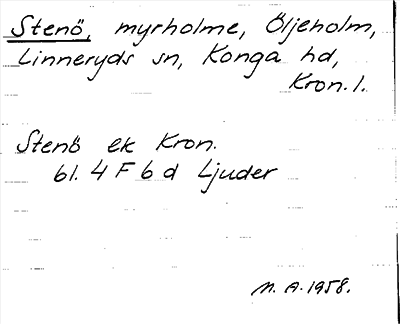 Stenö, myrholme, Öljeholm,
Linneryds sn, Konga hd,
Kron. l.
Stenö ek Kron.
bl. 4 F 6 d Ljuder
M. A. 1958.